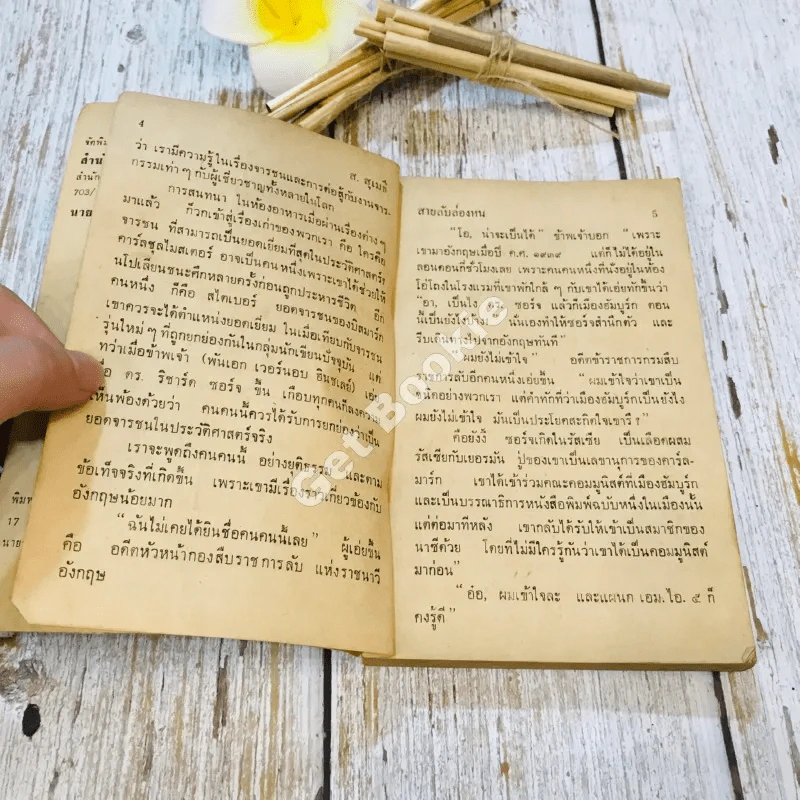 จัดพิม
สำนั
สำนัก
703/
นาย
พิมพ
17
นาย
4
ส. สุเมธ
ว่า เรามีความรู้ในเรื่องจารชนและการต่อสู้กับงานจาร-
กรรมเท่า ๆ กับผู้เชี่ยวชาญทั้งหลายในโลก
การสนทนา ในห้องอาหารเมื่อผ่านเรื่องต่าง ๆ
มาแล้ว ก็วกเข้าสู่เรื่องเก่าของพวกเรา คือ ใครคือ
จารชน ที่สามารถเป็นยอดเยี่ยมที่สุดในประวัติศาสตร์
คาร์ลชุลไมสเตอร์ อาจเป็นคนหนึ่งเพราะเขาได้ช่วยให้
นโปเลียนชนะศึกหลายครั้งก่อนถูกประหารชีวิต อีก
คนหนึ่ง ก็คือ สไตเบอร์ ยอดจารชนของบิสมาร์ก
เขาควรจะได้ตำแหน่งยอดเยี่ยม ในเมื่อเทียบกับจารชน
รุ่นใหม่ ๆ ที่ถูกยกย่องกันในกลุ่มนักเขียนปัจจุบัน แต่
ทว่าเมื่อข้าพเจ้า (พันเอก เวอร์นอบ อินชเลย์) เอ่ย
ชื่อ ดร. ริชาร์ด ซอร์จ ขึ้น เกือบทุกคนก็ลงความ
เห็นพ้องด้วยว่า คนคนนี้ควรได้รับการยกย่องว่าเป็น
ยอดจารชนในประวัติศาสตร์จริง
เราจะพูดถึงคนคนนี้ อย่างยุติธรรม และตาม
ข้อเท็จจริงที่เกิดขึ้น เพราะเขามีเรื่องราวเกี่ยวข้องกับ
อังกฤษน้อยมาก
“ฉันไม่เคยได้ยินชื่อคนคนนี้เลย” ผู้เอ่ยขึ้น
คือ อดีตหัวหน้ากองสืบราชการลับ แห่งราชนาวี
อังกฤษ
สายลับล่องหน 5
“โอ, น่าจะเป็นได้” ข้าพเจ้าบอก “เพราะ
เขามาอังกฤษเมื่อปี ค.ศ. ๑๙๓๙ แต่ก็ไม่ได้อยู่ใน
ลอนดอนกี่ชั่วโมงเลย เพราะคนคนหนึ่งที่นั่งอยู่ในห้อง
โอ่โถงในโรงแรมที่เขาพักใกล้ ๆ กับเขาได้เอ่ยทักขึ้นว่า
“อา, เป็นไง ดร. ซอร์จ แล้วก็เมืองฮัมบูร์ก ตอน
นี้เป็นยังไงบ้าง” นั่นเองทำให้ซอร์จสำนึกตัว และ
รีบเดินทางไปจากอังกฤษทันที”
“ผมยังไม่เข้าใจ” อดีตข้าราชการกรมสืบ
ราชการลับอีกคนหนึ่งเอ่ยขึ้น “ผมเข้าใจว่าเขาเป็น
นักอย่างพวกเรา แต่คำทักที่ว่าเมืองฮัมบูร์กเป็นยังไง
ผมยังไม่เข้าใจ มันเป็นประโยคสะกิดใจเขารึ?”
“คือยังงี้ ซอร์จเกิดในรัสเซีย เป็นเลือดผสม
รัสเซียกับเยอรมัน ปู่ของเขาเป็นเลขานุการของคาร์ล-
มาร์ก เขาได้เข้าร่วมคณะคอมมูนิสต์ที่เมืองฮัมบูร์ก
และเป็นบรรณาธิการหนังสือพิมพ์ฉบับหนึ่งในเมืองนั้น
แต่ต่อมาทีหลัง เขากลับได้รับให้เข้าเป็นสมาชิกของ
นาซีด้วย โดยที่ไม่มีใครรู้กันว่าเขาได้เป็นคอมมูนิสต์
มาก่อน”
“อ๋อ, ผมเข้าใจละ และแผนก เอม.ไอ. ๕ ก็
คงรู้ดี”
Get Bookie